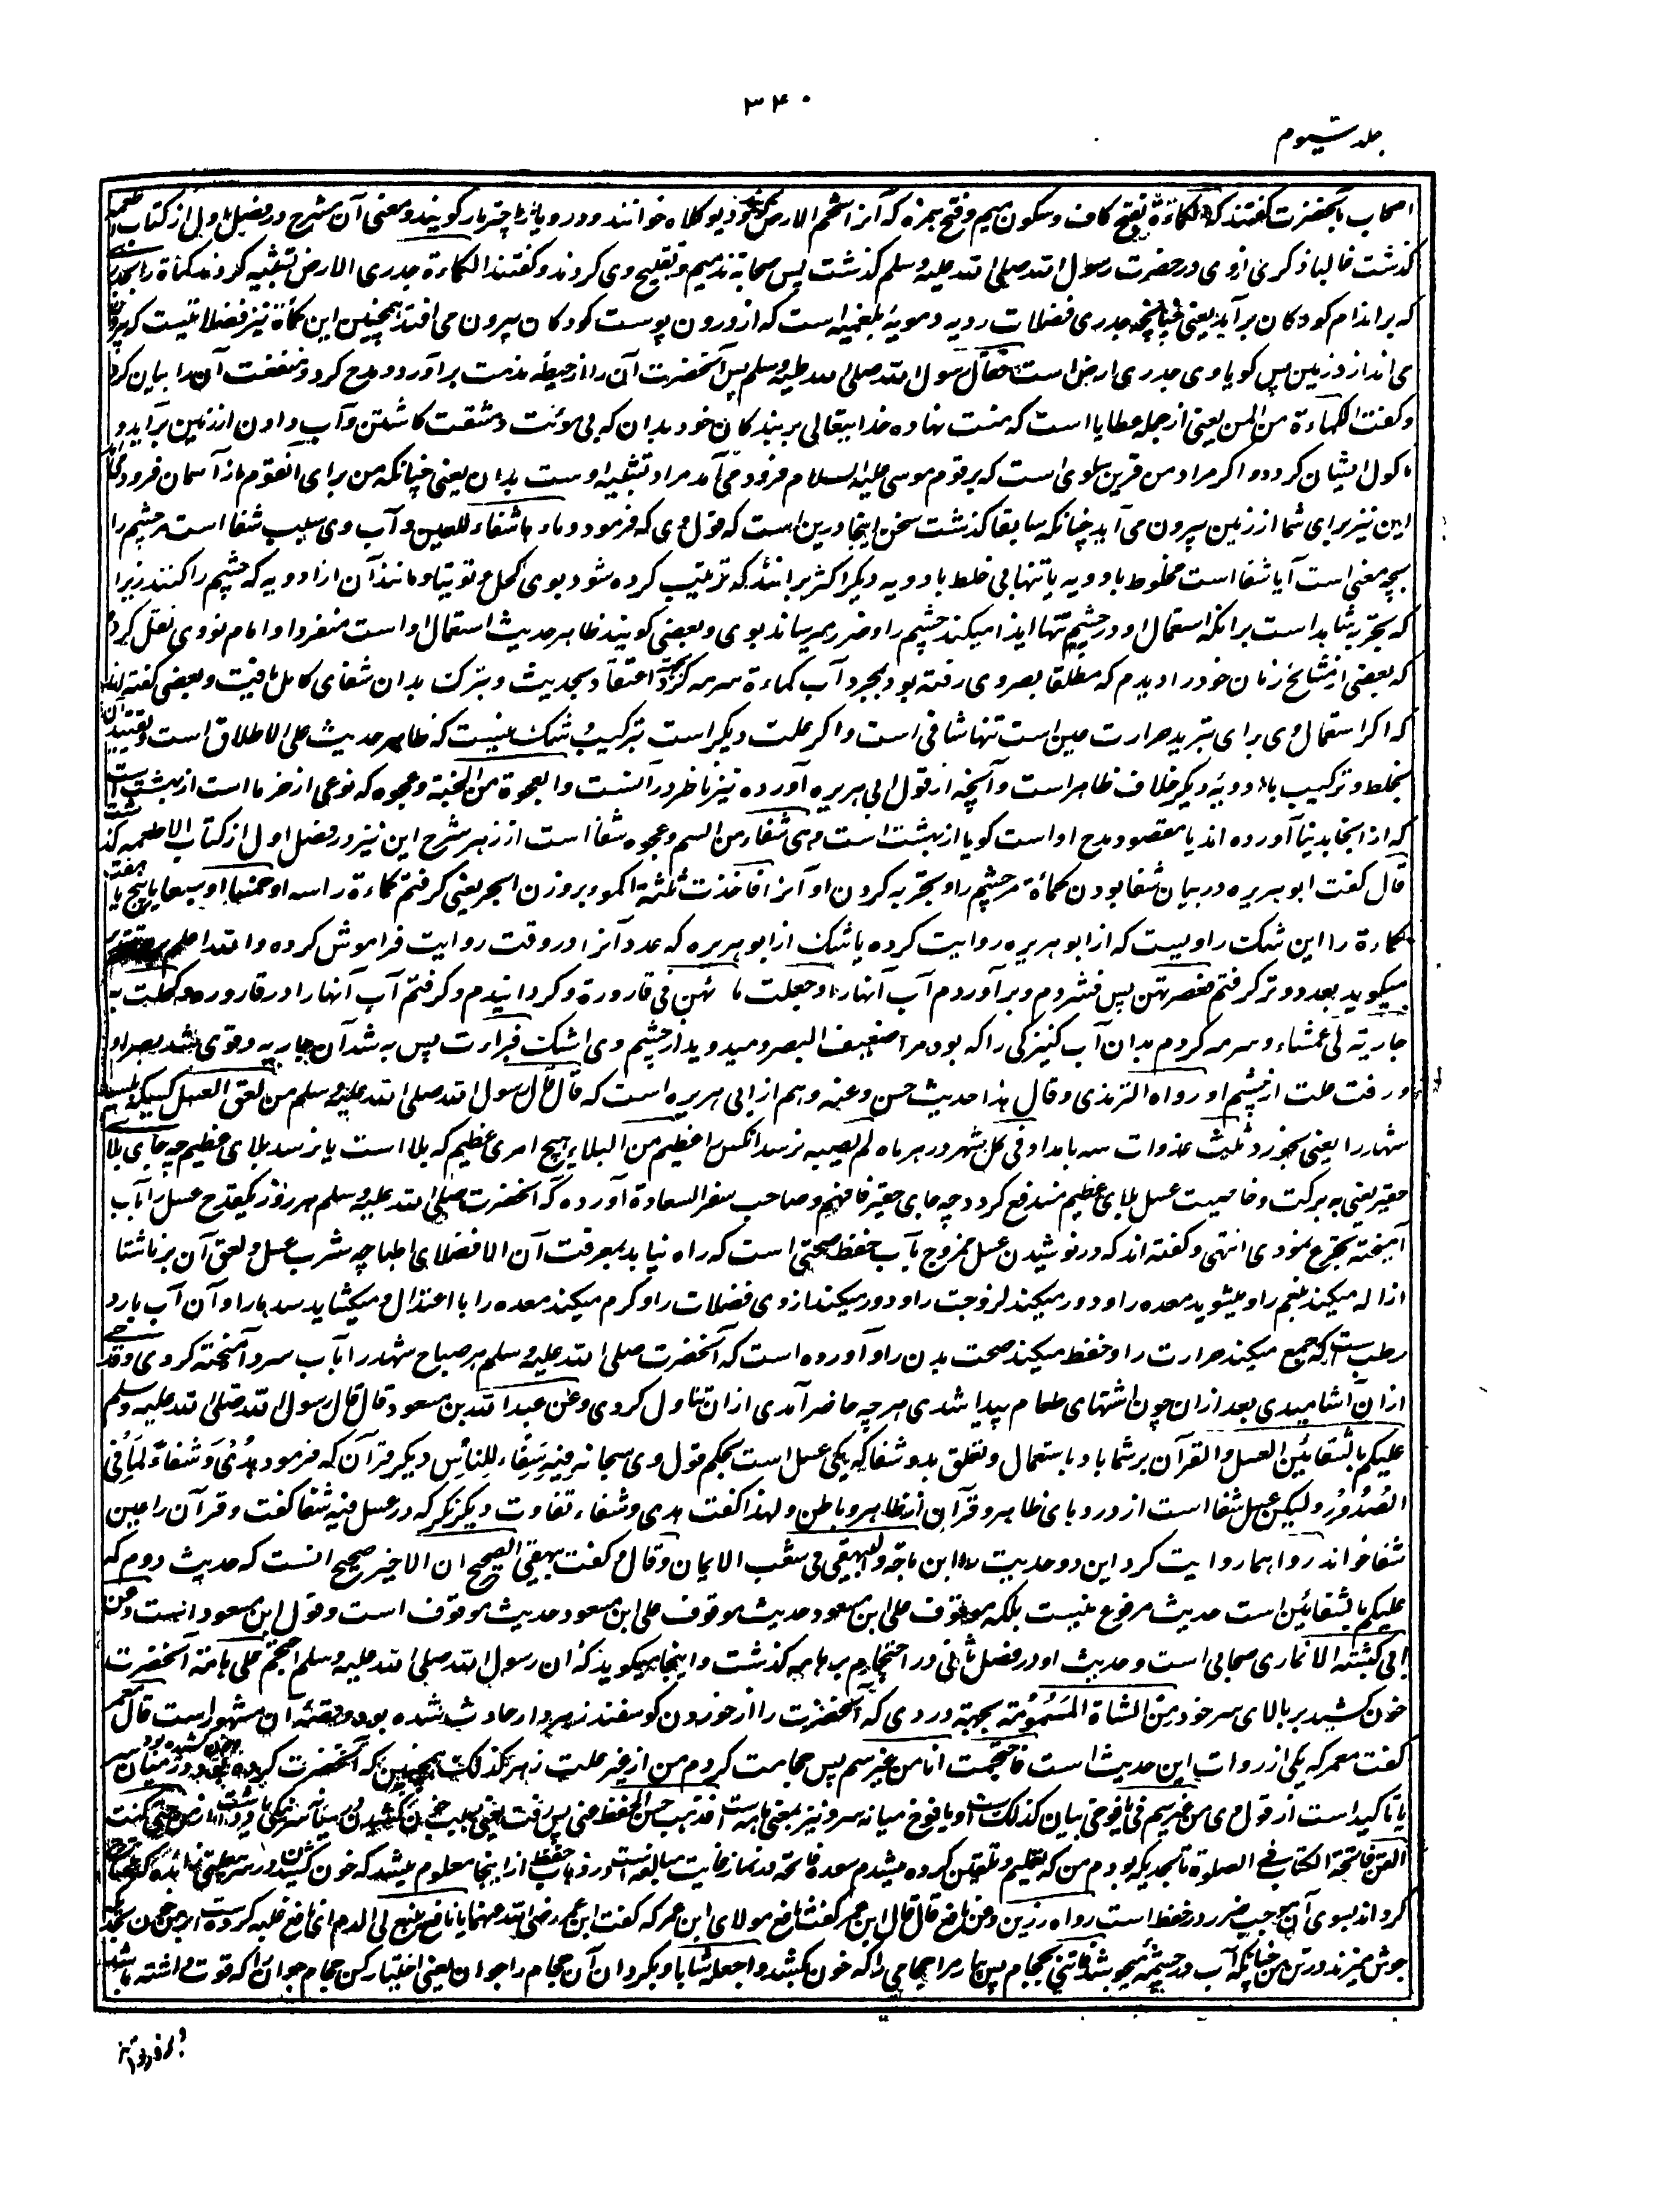 ۳۴۰
جلد سیوم
اصحاب بآنحضرت گفتند که الکمأة بفتح کاف و سکون میم و فتح همزه که آنرا شحم الارض و دیو کلاه خوانند و در و یار ما چتر مار گویند و معنی آن مشرح در فصل اول از کتاب اطعمه
گذشت غالبا ذکری از وی در حضرت رسول الله صلی الله علیه وسلم گذشت پس صحابه تذمیم و تقبیح وی کردند و گفتند الکماءة جدری الارض تشبیه کردند کمأة را بجدری
که بر اندام کودکان برآید یعنی چنانچه جدری فضلات ردیه دمویه بلغمیه است که از درون پوست کودکان بیرون می افتد همچنین این کمأة نیز فضلاتیست که بیرون
می اندازد زمین پس گویا وی جدری ارض است فقال رسول الله صلی الله علیه وسلم پس آنحضرت آن را از حیطه مذمت برآورد و مدح کرد و منفعت آن را بیان کرد
و گفت الکماءة من المن یعنی از جمله عطایا است که منت نهاده خدایتعالی بر بندگان خود بدان که بی مونت و مشقت کاشتن و آب دادن از زمین برآید و
ماکول ایشان گردد و اگر مراد من قرین سلوی است که بر قوم موسی علیه السلام فرود می آمد مراد تشبیه اوست بدان یعنی چنانکه من برای آنقوم از آسمان فرود می آمد
این نیز برای شما از زمین بیرون می آید چنانکه سابقا گذشت سخن اینجا درین است که قول وی که فرمود و ماؤها شفاء للعین و آب وی سبب شفا است مر چشم را
بچه معنی است آیا شفا است مخلوط با دویه یا تنها بی خلط با دویه دیگر اکثر برانند که تربیت کرده شود بوی کحل و توتیا و مانند آن از ادویه که چشم را کنند زیرا
که تجربه شاهد است برانکه استعمال او در چشم تنها ایذا میکند چشم را و ضرر میرساند بوی و بعضی گویند ظاهر حدیث استعمال او است منفردا و امام نووی نقل کرده
که بعضی از مشایخ زمان خود را دیدم که مطلقا بصر وی رفته بود بمجرد آب کماءة سرمه کرد بجهة اعتقاد بحدیث و تبرک بدان شفای کامل یافت و بعضی گفته اند
که اگر استعمال وی برای تبرید حرارت عین است تنها شافی است و اگر علت دیگر است بترکیب و شک نیست که ظاهر حدیث علی الاطلاق است و تقیید آن
بخلط و ترکیب با ادویه دیگر خلاف ظاهر است و آنچه از قول ابی هریره آورده نیز ناظر در آنست والعجوة من الجنة و عجوه که نوعی از خرما است از بهشت است
که از آنجا بدنیا آورده اند یا مقصود مدح او است گویا از بهشت است وهی شفاء من السم و عجوه شفا است از زهر شرح این نیز در فصل اول از کتاب الاطعمه گذشت
قال گفت ابو هریره در بیان شفا بودن کمأة مر چشم را و تجربه کردن او آنرا فاخذت ثلثة اکمؤ بر وزن ابحر یعنی گرفتم کماءة را سه او خمسا او سبعا یا پنج یا هفت
کماءة را این شک راویست که از ابو هریره روایت کرده یا شک از ابو هریره که عدد آنرا در وقت روایت فراموش کرده والله اعلم
میگوید بعد دوتر گرفتم فعصرتهن پس فشردم و برآوردم آب آنها را و جعلت ماءهن فی قارورة و گردانیدم و گرفتم آب آنها را در قاروره و کحلت به
جاریة لی عمشاء و سرمه کردم بدان آب کنیزکی را که بود مرا ضعیف البصر و میدوید از چشم وی اشک فبراءت پس به شد آن جاریه و قوی شد بصر او
و رفت علت از چشم او رواه الترمذی وقال هذا حدیث حسن و عنه و هم از ابی هریره است که قال قال رسول الله صلی الله علیه وسلم من لعق العسل کسیکه بلیسد
شهد را یعنی بخورد ثلث غدوات سه بامداد فی کل شهر در هر ماه لم یصبه نرسد آنکس را عظیم من البلاء هیچ امری عظیم که بلا است یا نرسد بلای عظیم چه جای بلا
حقیر یعنی به برکت و خاصیت عسل بلای عظیم مندفع گردد چه جای حقیر فافهم و صاحب سفر السعادة آورده که آنحضرت صلی الله علیه وسلم هر روز یکقدح عسل را بآب
آمیخته تجرع نمودی انتهی و گفته اند که در نوشیدن عسل ممزوج بآب حفظ صحتی است که راه نیابد بمعرفت آن الا فضلای اطبا چه شرب عسل و لعق آن بر ناشتا
ازاله میکند بلغم را و میشوید معده را و دور میکند لزوجت را و دور میکند از وی فضلات را و گرم میکند معده را با اعتدال و میکشاید سدها را و آن آب بارد
رطب است که جمع میکند حرارت را و حفظ میکند صحت بدن را و آورده است که آنحضرت صلی الله علیه وسلم هر صباح شهد را بآب سرد آمیخته کردی و قدحی
ازان آشامیدی بعد ازان چون اشتهای طعام پیدا شدی هر چه حاضر آمدی ازان تناول کردی وعن عبد الله بن مسعود قال قال رسول الله صلی الله علیه وسلم
علیکم بالشفائین العسل والقرآن بر شما باد باستعمال و تعلق بدو شفا که یکی عسل است بحکم قول وی سبحانه فِیهِ شِفَاءٌ لِلنَّاسِ دیگر قرآن که فرمود هُدًی وَشِفَاءٌ لِمَا فِی
الصُّدُورِ ولیکن عسل شفا است از دردهای ظاهر و قرآن از ظاهر و باطن و لهذا گفت هدی و شفاء تفاوت دیگر نگر که در عسل فیه شفا گفت و قرآن را عین
شفا خواند رواهما روایت کرد این دو حدیث را ابن ماجة والبیهقی فی شعب الایمان وقال و گفت بیهقی الصحیح ان الاخیر صحیح آنست که حدیث دوم که
علیکم بالشفائین است حدیث مرفوع نیست بلکه موقوف علی ابن مسعود حدیث موقوف است و قول ابن مسعود است وعن
ابی کبشة الانماری صحابی است و حدیث او در فصل ثانی در احتجام بر هامه گذشت و اینجا میگوید که ان رسول الله صلی الله علیه وسلم احتجم علی هامته آنحضرت
خون کشید بر بالای سر خود مِنَ الشاة المَسمُومَة بجهة دردی که آنحضرت را از خوردن گوسفند زهردار حادث شده بود و قصه آن مشهور است قال معمر
گفت معمر که یکی از روات این حدیث است فاحتجمت انا من غیر سم پس حجامت کردم من از غیر علت زهر کذلک همچنین که آنحضرت کرده بود و در میان سر
یا تاکید است از قول وی من غیر سم فی یافوخی بیان کذلک است او یا فوخ میانه سر و نیز بمعنی هامه است فذهب حسن الحفظ عنی پس رفت یعنی بسبب خون کشیدن در میان سر نیکی یاد داشت از من حتی کنت
القن فاتحة الکتاب فی الصلوة تا بحدیکه بودم من که تعلیم و تلقین کرده میشدم سوره فاتحه در نماز غایت مبالغه است در ذهاب حفظ از اینجا معلوم میشد که خون کشیدن در سر
گرداند بسوی آن موجب ضرر در حفظ است رواه رزین وعن نافع قال قال ابن عمر گفت نافع مولای ابن عمر که گفت ابن عمر رضی الله عنهما یا نافع ینبع بی الدم ای نافع غلبه کرده است بر من خون
جوش میزند در تن من چنانکه آب در چشمه میجوشد فاتنی بحجام پس بیار مرا حجامی را که خون بکشد واجعله شابا و بگردان آن حجام را جوان یعنی اختیار کن حجام جوان را که قوت داشته باشد